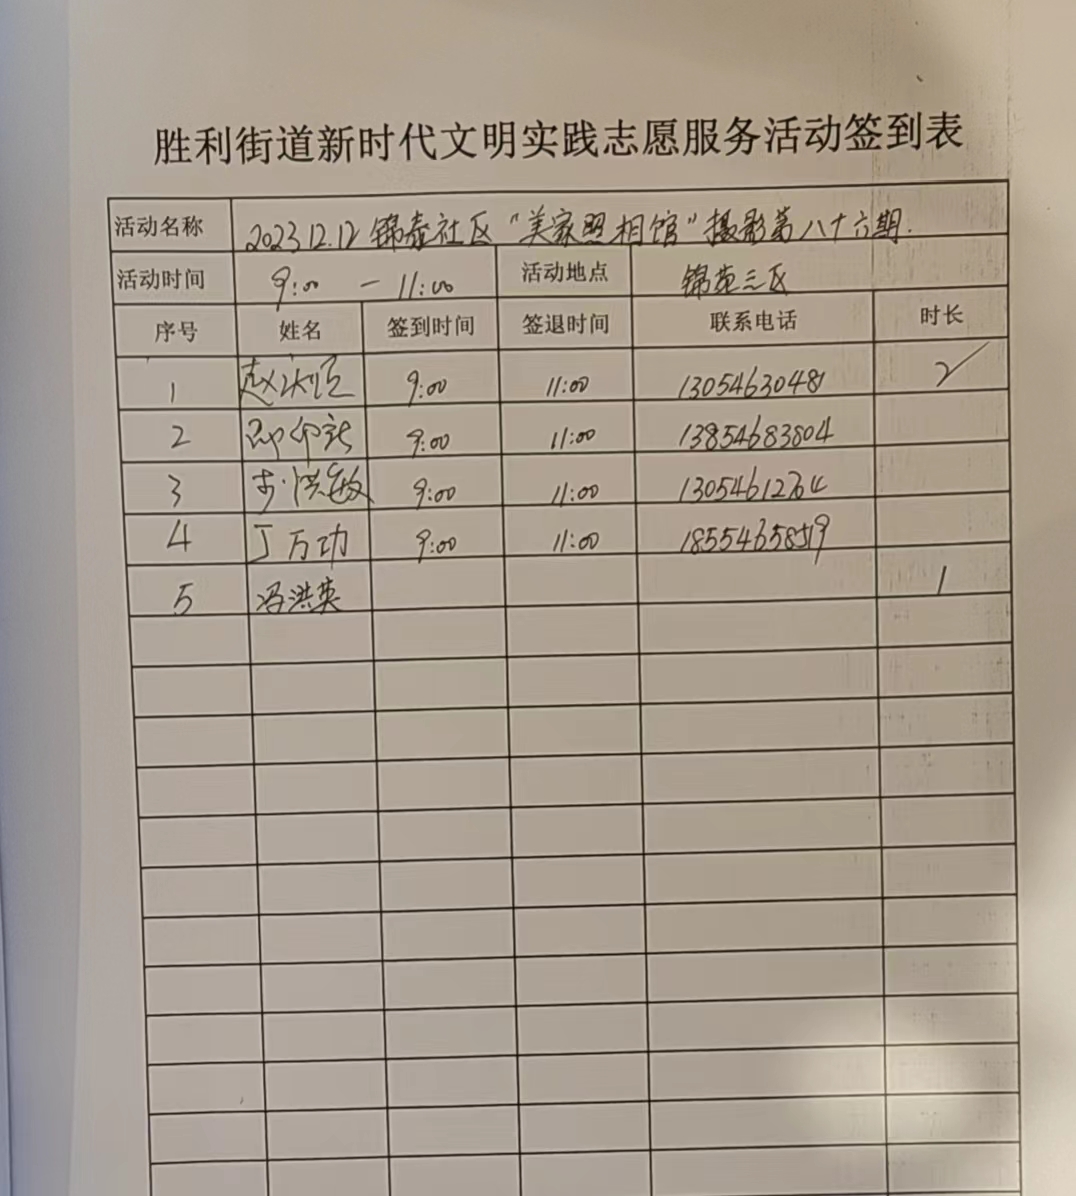 胜利街道新时代文明实践志愿服务活动签到表
活动名称 2023.12.12 锦泰社区“美家照相馆”摄影第八十六期.
活动时间 9:00 — 11:00 活动地点 锦苑三区
序号 姓名 签到时间 签退时间 联系电话 时长
1 9:00 11:00 13054630481 2
2 9:00 11:00 13854683804
3 步洪敏 9:00 11:00
4 丁万功 9:00 11:00 18554658519
5 冯洪英 1